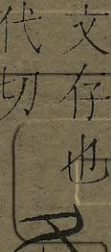 文存也
代切